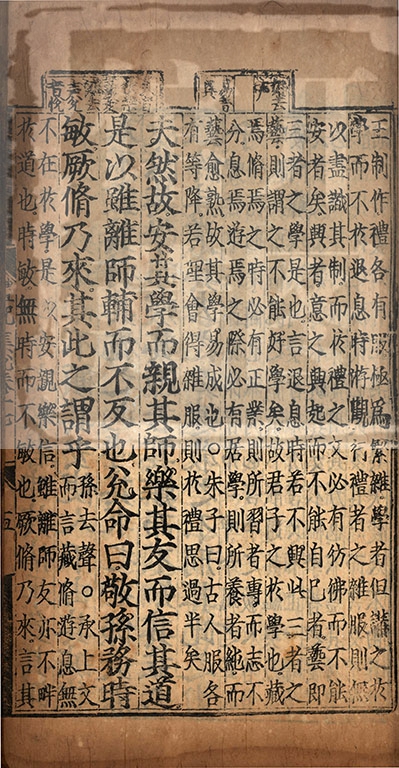 王制作禮各有服極爲繁雜學者但講之於
學而不於退息時游觀行禮者之雜服則無
以盡識其制而於禮之文必有彷彿而不能
安者矣興者意之興起而不能自已者藝即
三者之學是也言退息時若不興此三者之
藝則謂之不能好學矣故君子之於學也藏
焉脩焉之時必有正業則所習者專而志不
分息焉遊焉之際必有居學則所養者純而
藝愈熟故其學易成也○朱子曰古人服各
有等降若理會得雜服則於禮思過半矣
夫然故安其學而親其師樂其友而信其道
是以雖離師輔而不反也兌命曰敬孫務時
敏厥脩乃來其此之謂乎孫去聲○承上文
而言藏脩遊息無
不在於學是以安親樂信雖離師友亦不畔
於道也時敏無時而不敏也厥脩乃來言其
五